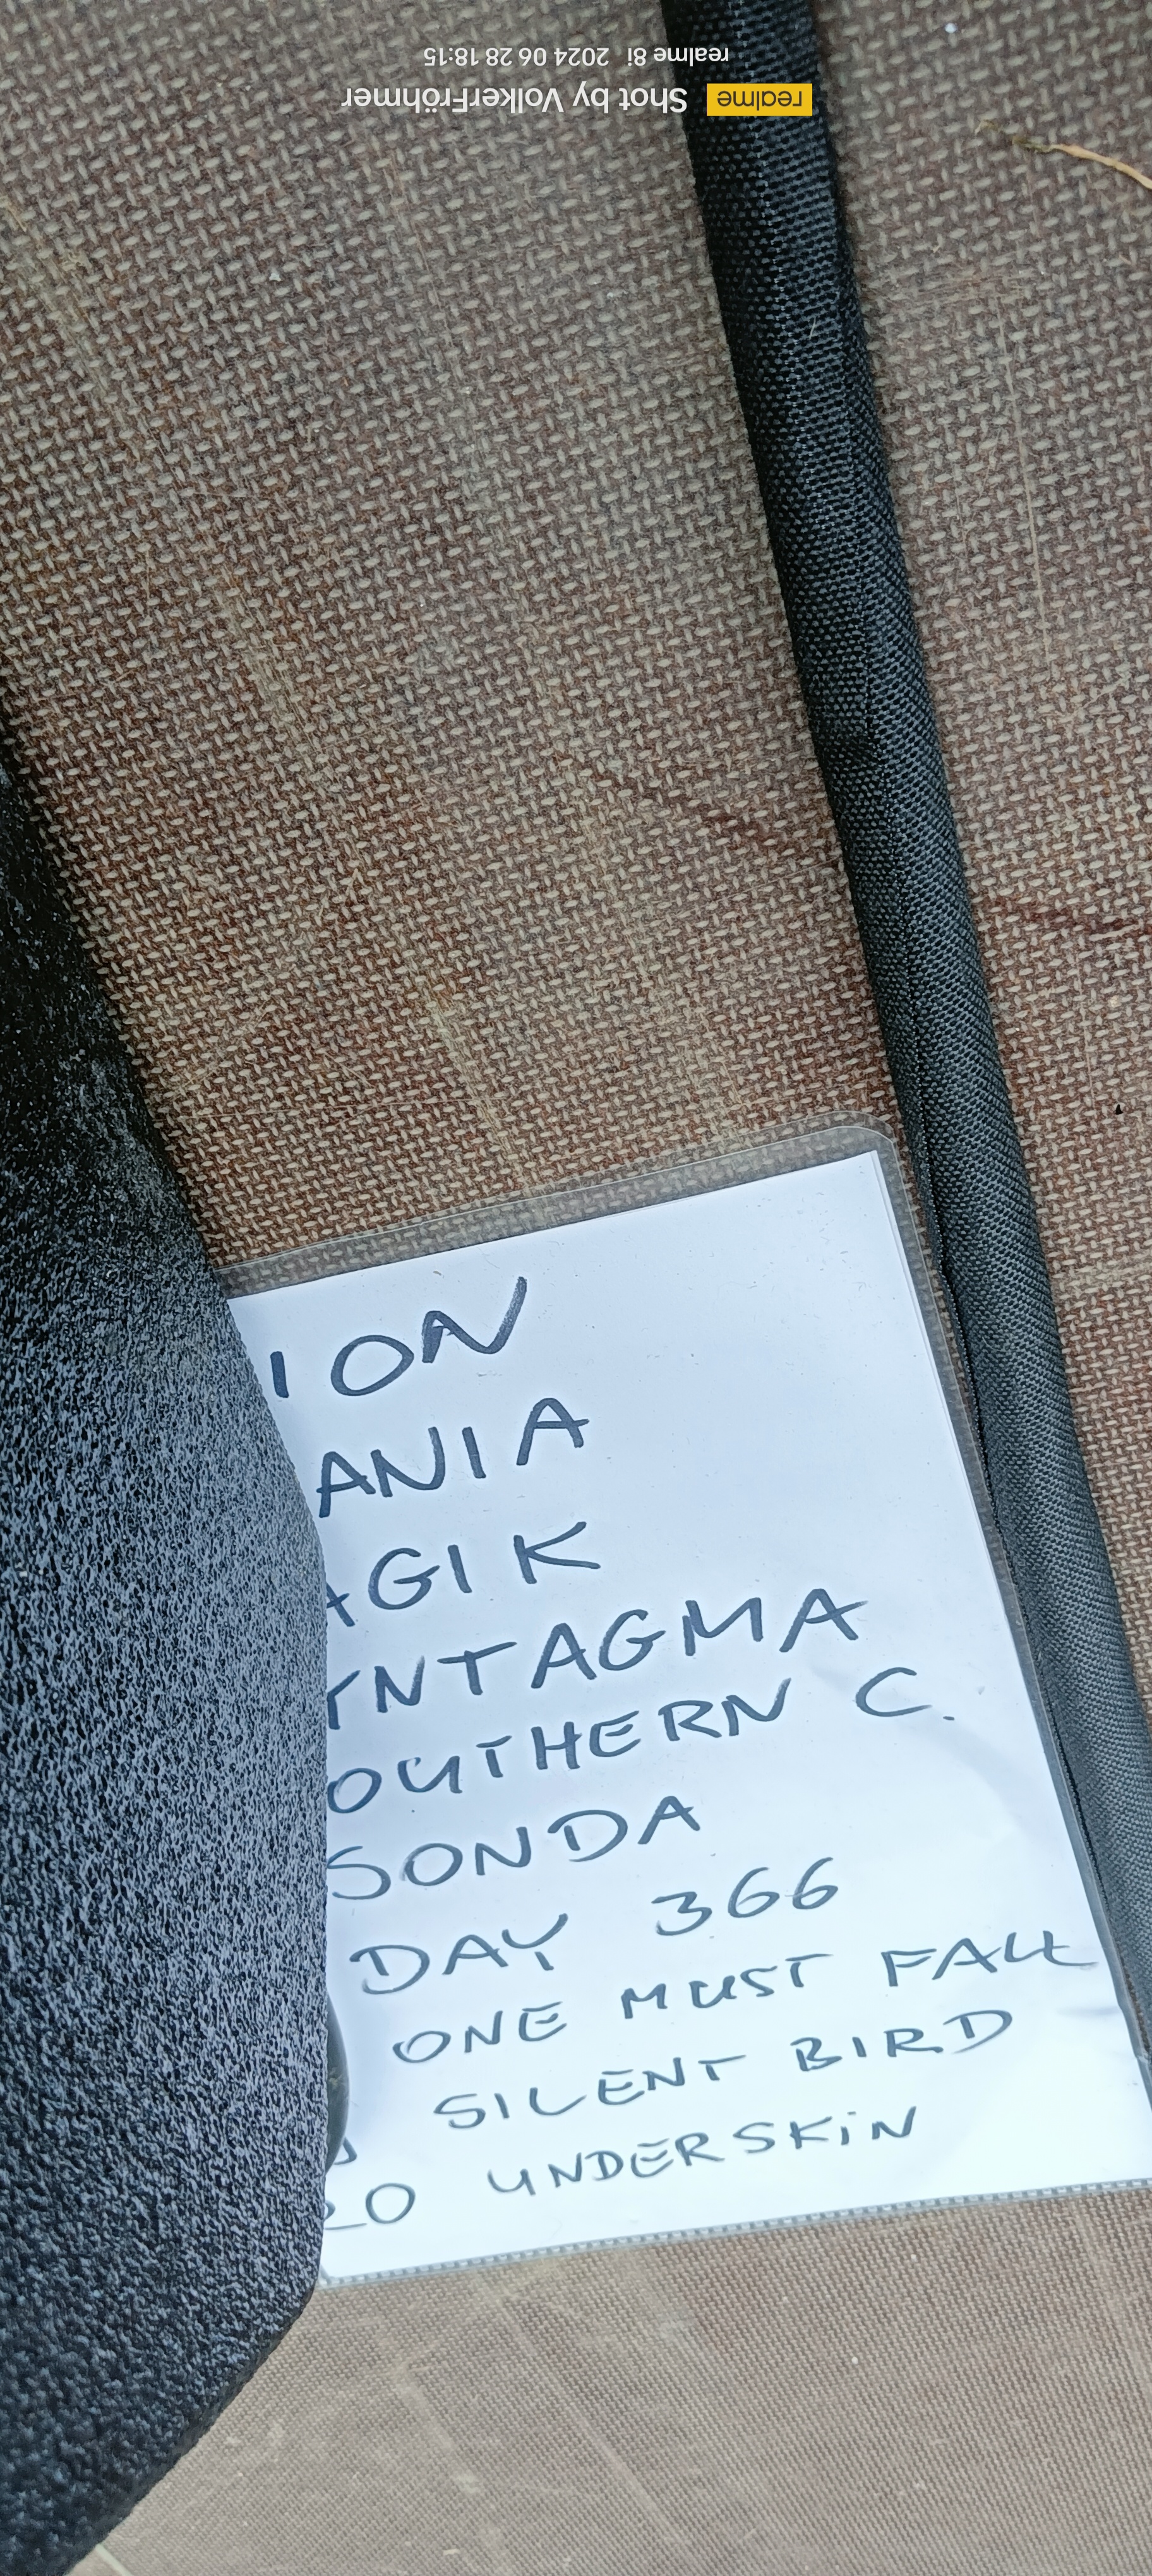 ION
ANIA
AGIK
YNTAGMA
OUTHERN C.
SONDA
DAY 366
ONE MUST FALL
SILENT BIRD
20 UNDERSKIN
realme Shot by VolkerFröhmer
realme 8i 2024 06 28 18:15